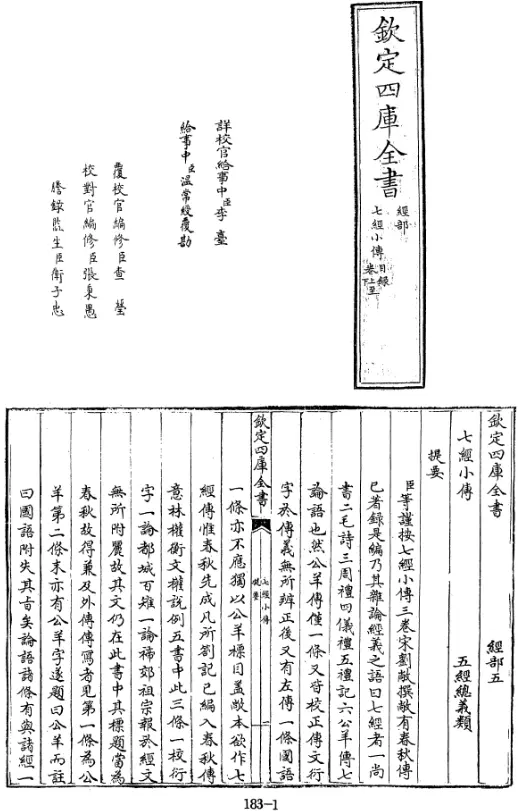 欽定四庫全書
經部
七經小傳
目錄
卷上至下
詳校官給事中臣李臺
給事中臣溫常綬覆勘
覆校官編修臣查瑩
校對官編修臣張秉愚
謄錄監生臣衛于忠
欽定四庫全書 經部五
七經小傳 五經總義類
提要
臣等謹按七經小傳三卷宋劉敞撰敞有春秋傳
已著錄是編乃其雜論經義之語曰七經者一尚
書二毛詩三周禮四儀禮五禮記六公羊傳七
論語也然公羊傳僅一條又皆校正傳文衍
字於傳義無所辨正後又有左傳一條國語
欽定四庫全書
七經小傳
提要
一
一條亦不應獨以公羊標目蓋敞本欲作七
經傳惟春秋先成凡所劄記已編入春秋傳
意林權衡文權說例五書中此三條一校衍
字一論都城百雉一論禘郊祖宗報於經文
無所附麗故其文仍在此書中其標題當為
春秋故得兼及外傳傳寫者見第一條為公
羊第二條末亦有公羊字遂題曰公羊而註
曰國語附失其旨矣論語諸條有與諸經一
183-1